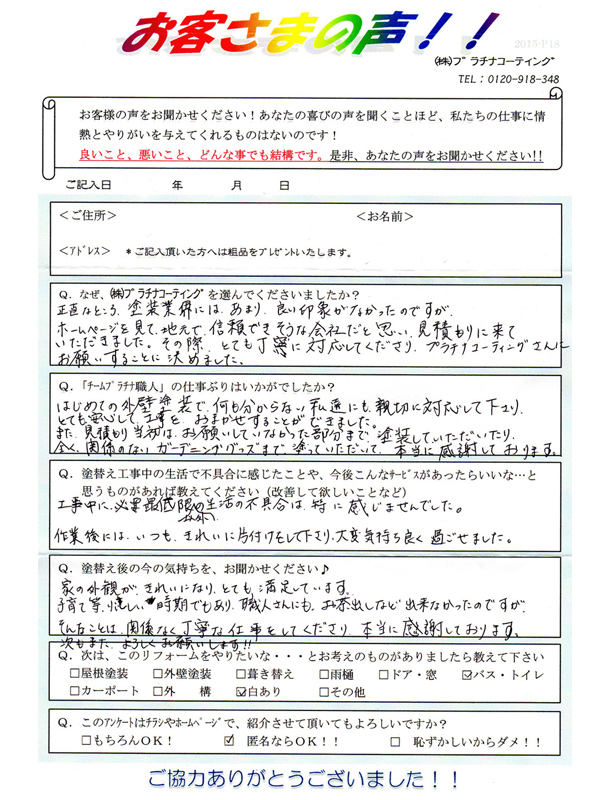 お客さまの声！！
2015-F18
㈱プラチナコーティング
TEL：0120-918-348
お客様の声をお聞かせください！あなたの喜びの声を聞くことほど、私たちの仕事に情
熱とやりがいを与えてくれるものはないのです！
良いこと、悪いこと、どんな事でも結構です。是非、あなたの声をお聞かせください!!
ご記入日　　　年　　　月　　　日
＜ご住所＞　　　＜お名前＞
＜アドレス＞　＊ご記入頂いた方へは粗品をプレゼントいたします。
Q．なぜ、㈱プラチナコーティングを選んでくださいましたか？
正直なところ、塗装業界には、あまり、良い印象がなかったのですが、
ホームページを見て、地元で、信頼できそうな会社だと思い、見積もりに来て
いただきました。その際、とても丁寧に対応してくださり、プラチナコーティングさんに
お願いすることに決めました。
Q．「チームプラチナ職人」の仕事ぶりはいかがでしたか？
はじめての外壁塗装で、何も分からない私達にも、親切に対応して下さり、
とても安心して工事を、おまかせすることができました。
また、見積もり当初は、お願いしていなかった部分まで塗装していただいたり、
全く、関係のないガーデニンググッズまで塗っていただいて、本当に感謝しております。
Q．塗替え工事中の生活で不具合に感じたことや、今後こんなサービスがあったらいいな…と
思うものがあれば教えてください（改善して欲しいことなど）
工事中に、必要最低限の生活の不具合は、特に感じませんでした。
以外
作業後には、いつも、きれいに片付けをして下さり、大変気持ち良く過ごせました。
Q．塗替え後の今の気持ちを、お聞かせください♪
家の外観が、きれいになり、とても、満足しています。
子育て等、忙しい時期でもあり、職人さんにも、お茶出しなど出来なかったのですが、
そんなことは、関係なく丁寧な仕事をしてくださり、本当に感謝しております。
次もまた、よろしくお願いします!!
Q．次は、このリフォームをやりたいな・・・とお考えのものがありましたら教えて下さい
□屋根塗装　□外壁塗装　□葺き替え　□雨樋　□ドア・窓　☑バス・トイレ
□カーポート　□外　構　☑白あり　□その他
Q．このアンケートはチラシやホームページで、紹介させて頂いてもよろしいですか？
□もちろんOK！　☑ 匿名ならOK！！　□ 恥ずかしいからダメ！！
ご協力ありがとうございました！！